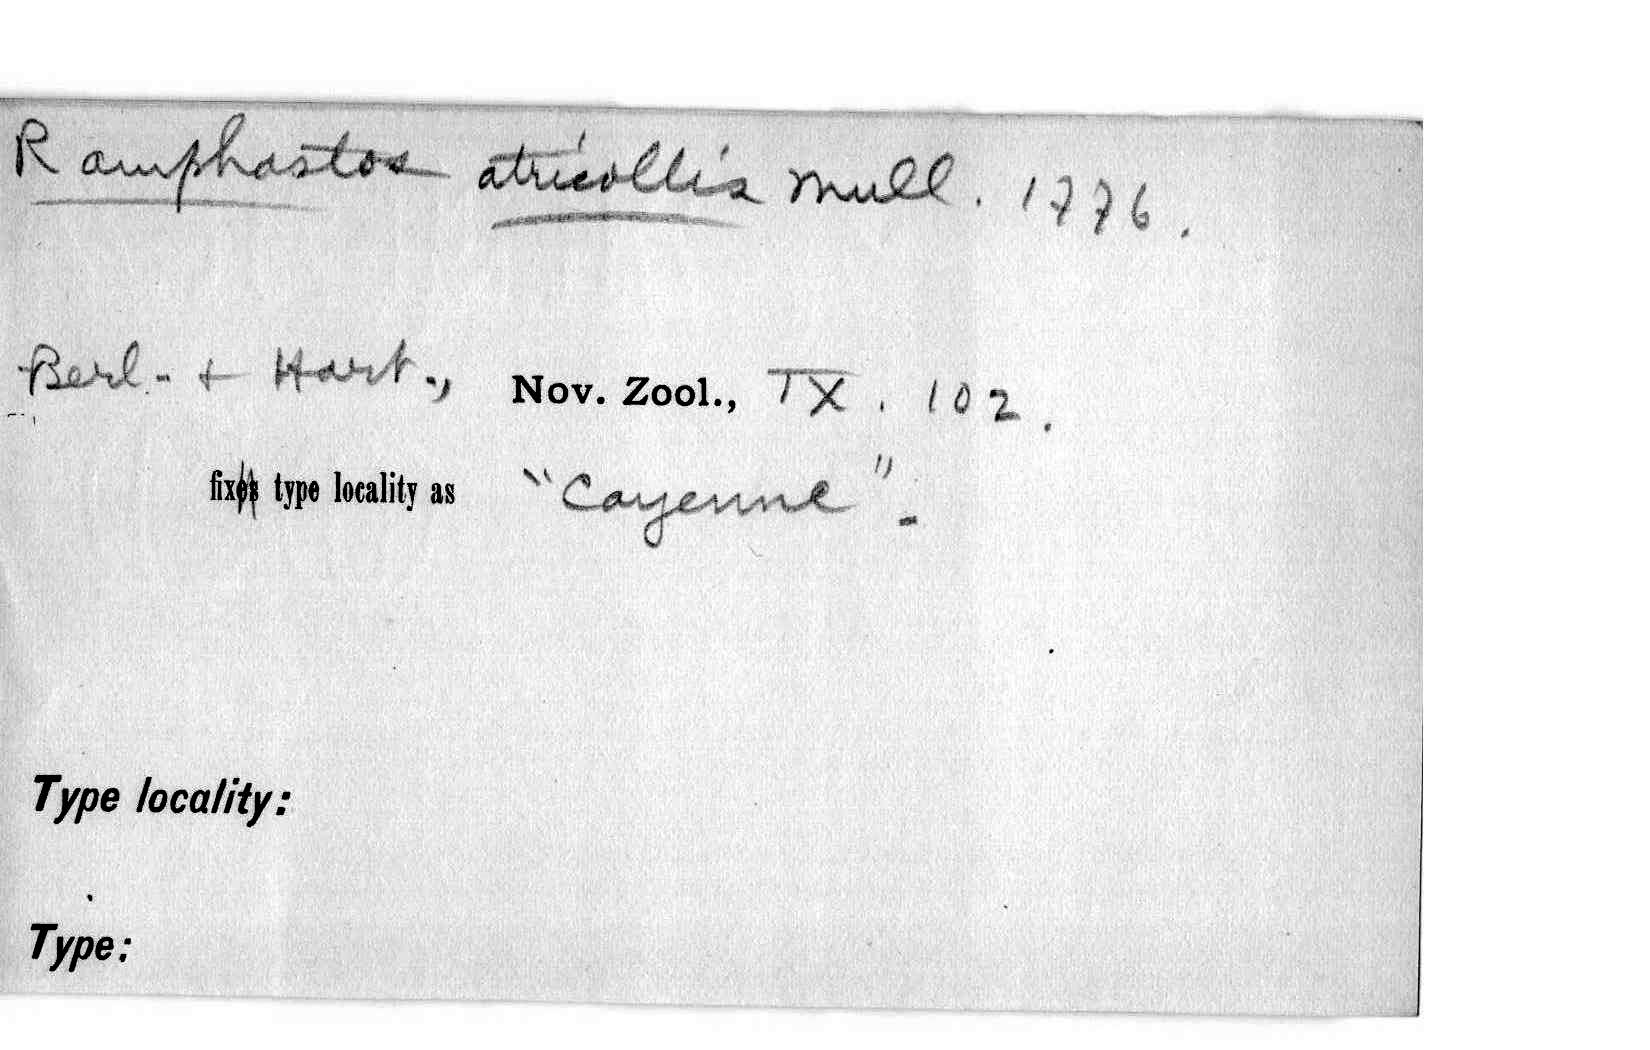 Ramphastos atricollis Mull. 1776.
Berl. + Hart., Nov. Zool., IX. 102.
fix type locality as "Cayenne".
Type locality:
Type: